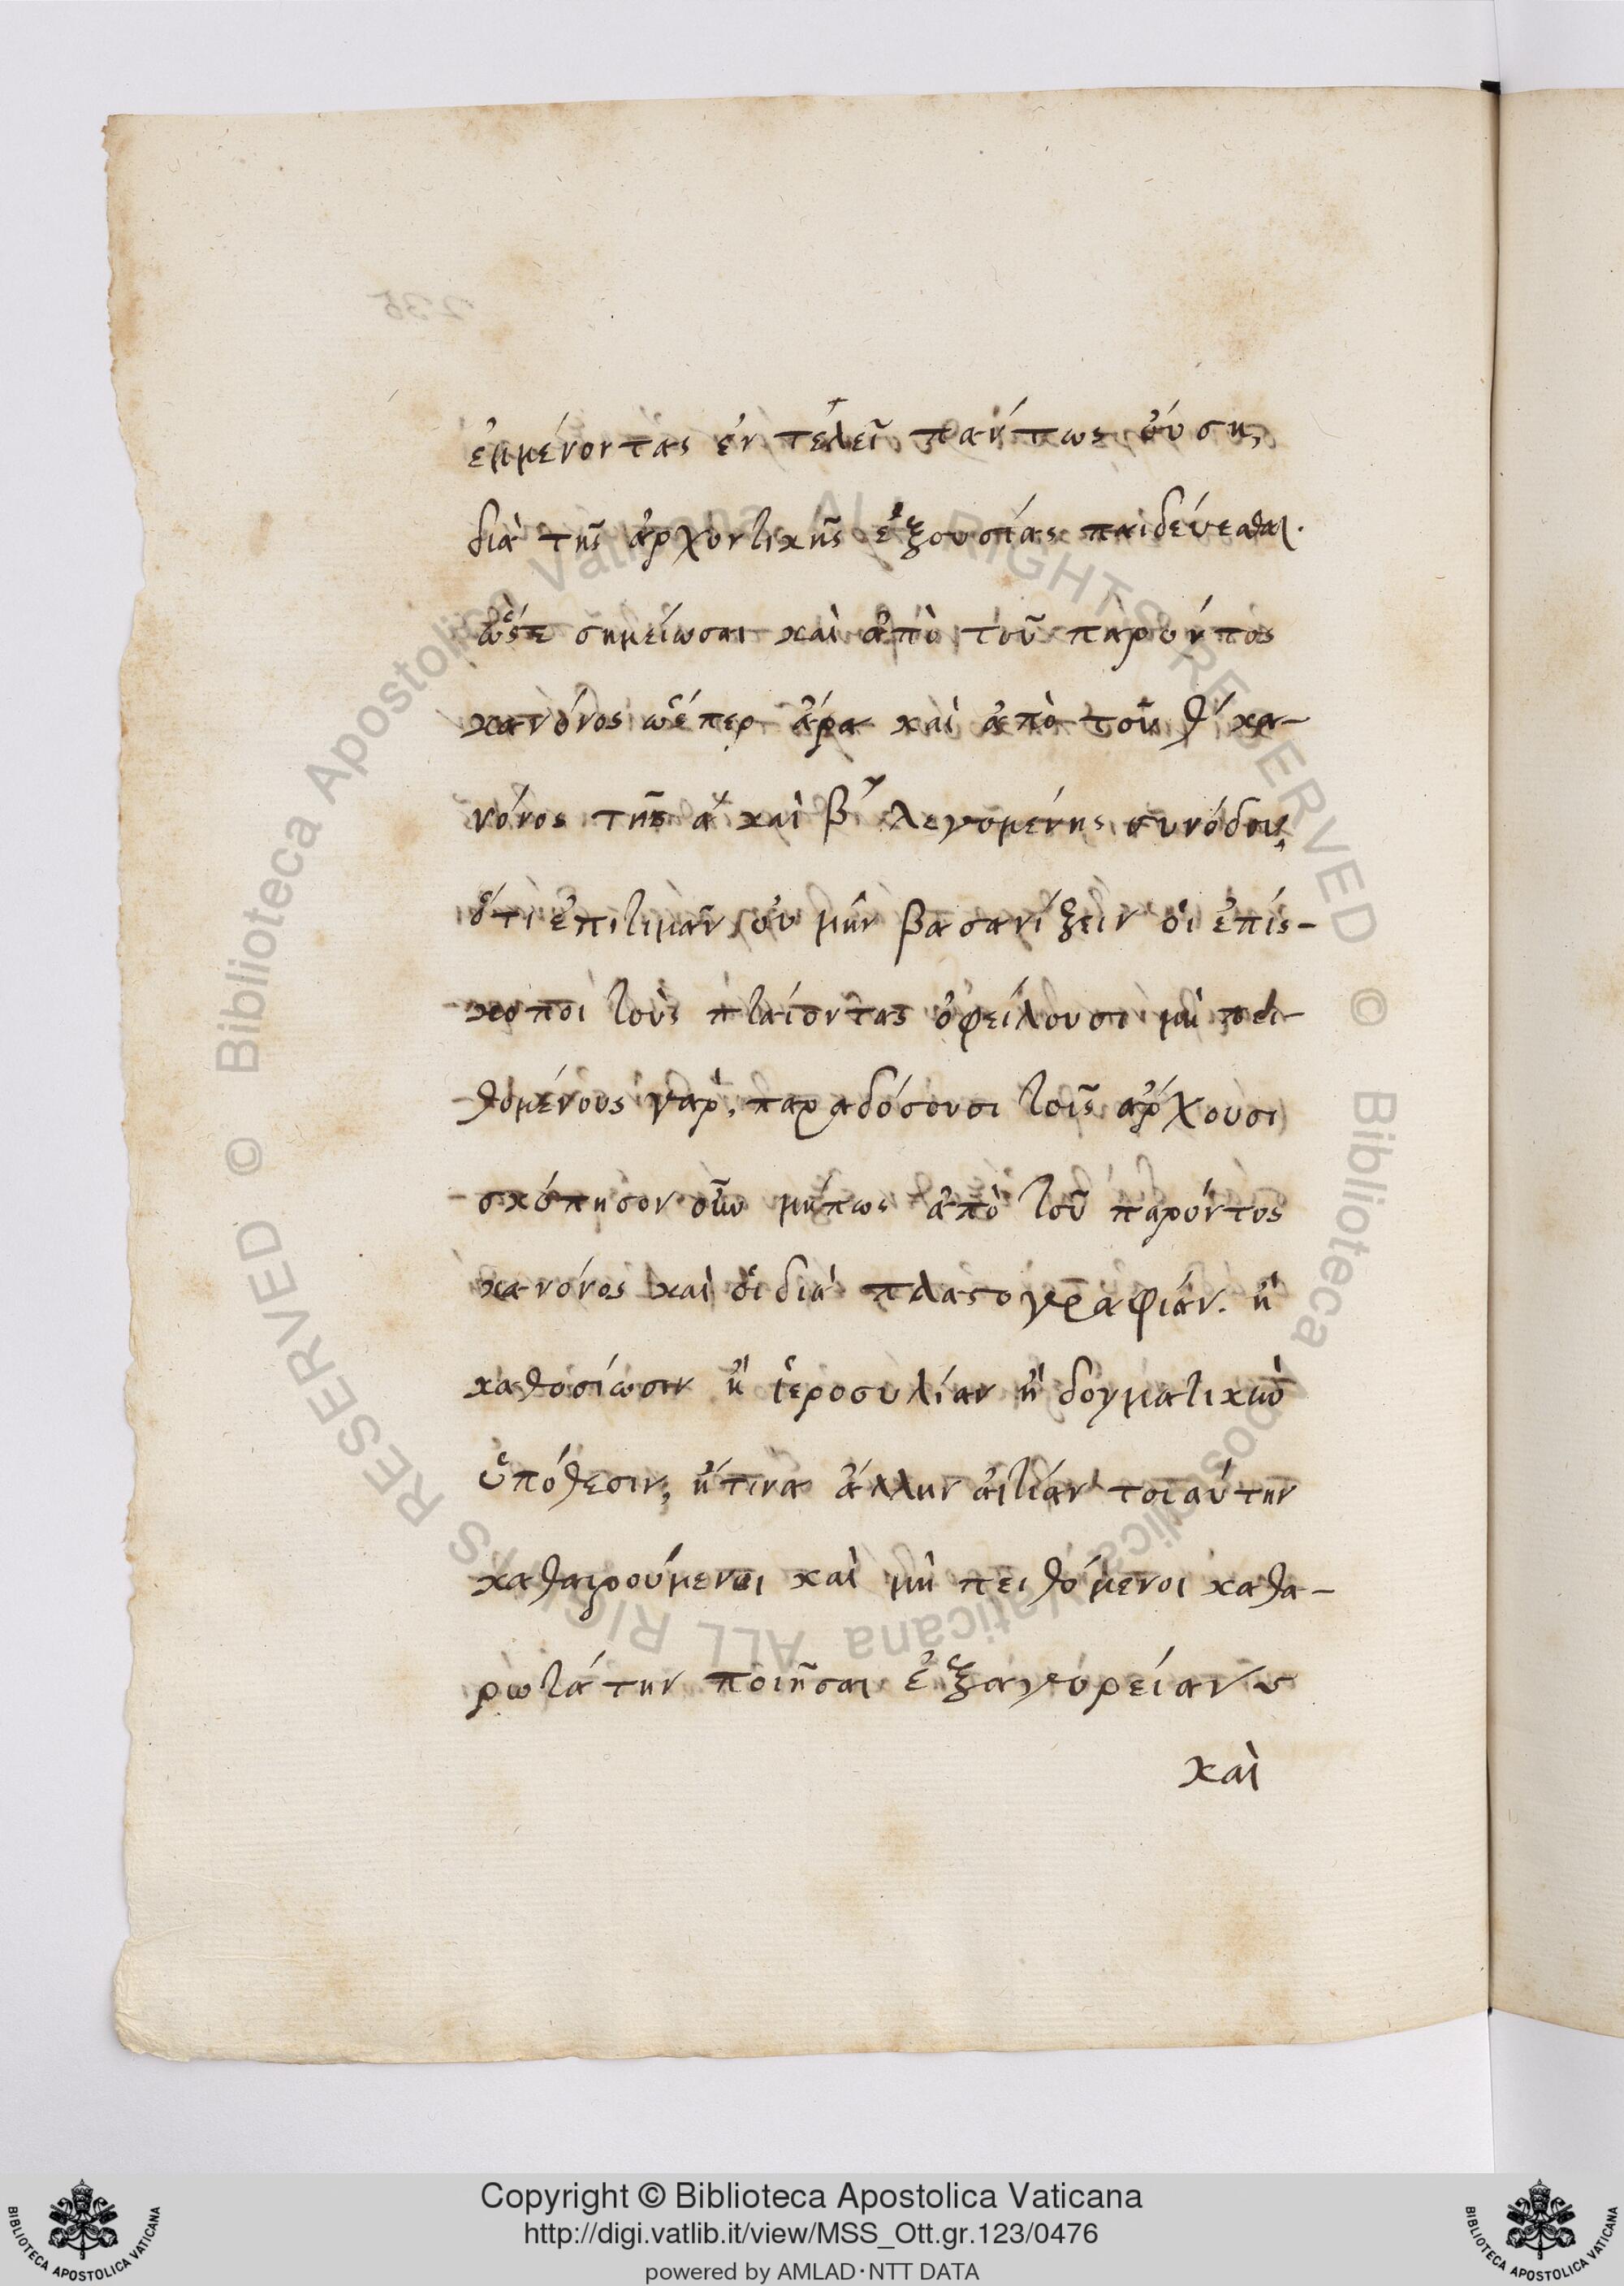 ἐμμένοντας ἐν τέλει πάντως οὔση,
διὰ τῆς ἀρχοντικῆς ἐξουσίας παιδεύεσθαι.
ὥστε σημείωσαι καὶ ἀπὸ τοῦ παρόντος
κανόνος ὥσπερ ἄρα καὶ ἀπὸ τοῦ θ´ κα-
νόνος τῆς α´ καὶ β´ λεγομένης συνόδου,
ὅτι ἐπιτιμᾶν οὐ μὴν βασανίζειν οἱ ἐπίσ-
κοποι τοὺς πταίοντας ὀφείλουσι μὴ πει-
θομένους γὰρ, παραδόσουσι τοῖς ἄρχουσι
σκόπησον οὖν μήπως ἀπὸ τοῦ παρόντος
κανόνος καὶ οἱ διὰ πλαστογραφίαν. ἢ
καθοσίωσιν ἢ ἱεροσυλίαν ἢ δογματικὴν
ὑπόθεσιν, ἤτινα ἄλλην αἰτίαν τοιαύτην
καθαιρούμενοι καὶ μὴ πειθόμενοι καθα-
ρωτάτην ποιῆσαι ἐξαγορείαν
καὶ
Copyright © Biblioteca Apostolica Vaticana
http://digi.vatlib.it/view/MSS_Ott.gr.123/0476
powered by AMLAD·NTT DATA